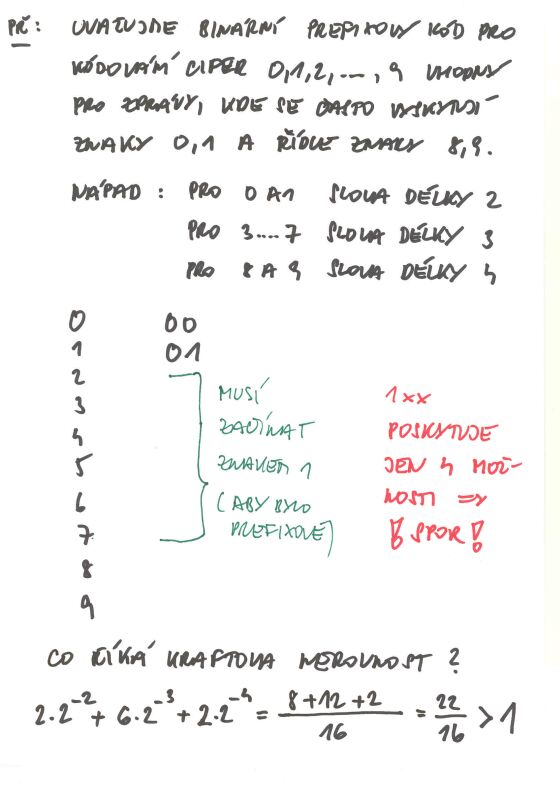 PŘ: UVAŽUJME BINÁRNÍ PREFIXOVÝ KÓD PRO
KÓDOVÁNÍ CIFER 0,1,2,...,9 VHODNÝ
PRO ZPRÁVY, KDE SE ČASTO VYSKYTUJÍ
ZNAKY 0,1 A ŘÍDCE ZNAKY 8,9.
NÁPAD : PRO 0 A 1 SLOVA DÉLKY 2
PRO 3....7 SLOVA DÉLKY 3
PRO 8 A 9 SLOVA DÉLKY 4
0 00
1 01
2
3
4
5
6
7
8
9
MUSÍ
ZAČÍNAT
ZNAKEM 1
(ABY BYLO
PREFIXOVÉ)
1xx
POSKYTUJE
JEN 4 MOŽ-
NOSTI =>
! SPOR !
CO ŘÍKÁ KRAFTOVA NEROVNOST ?
2.2^-2 + 6.2^-3 + 2.2^-4 = (8+12+2)/16 = 22/16 > 1